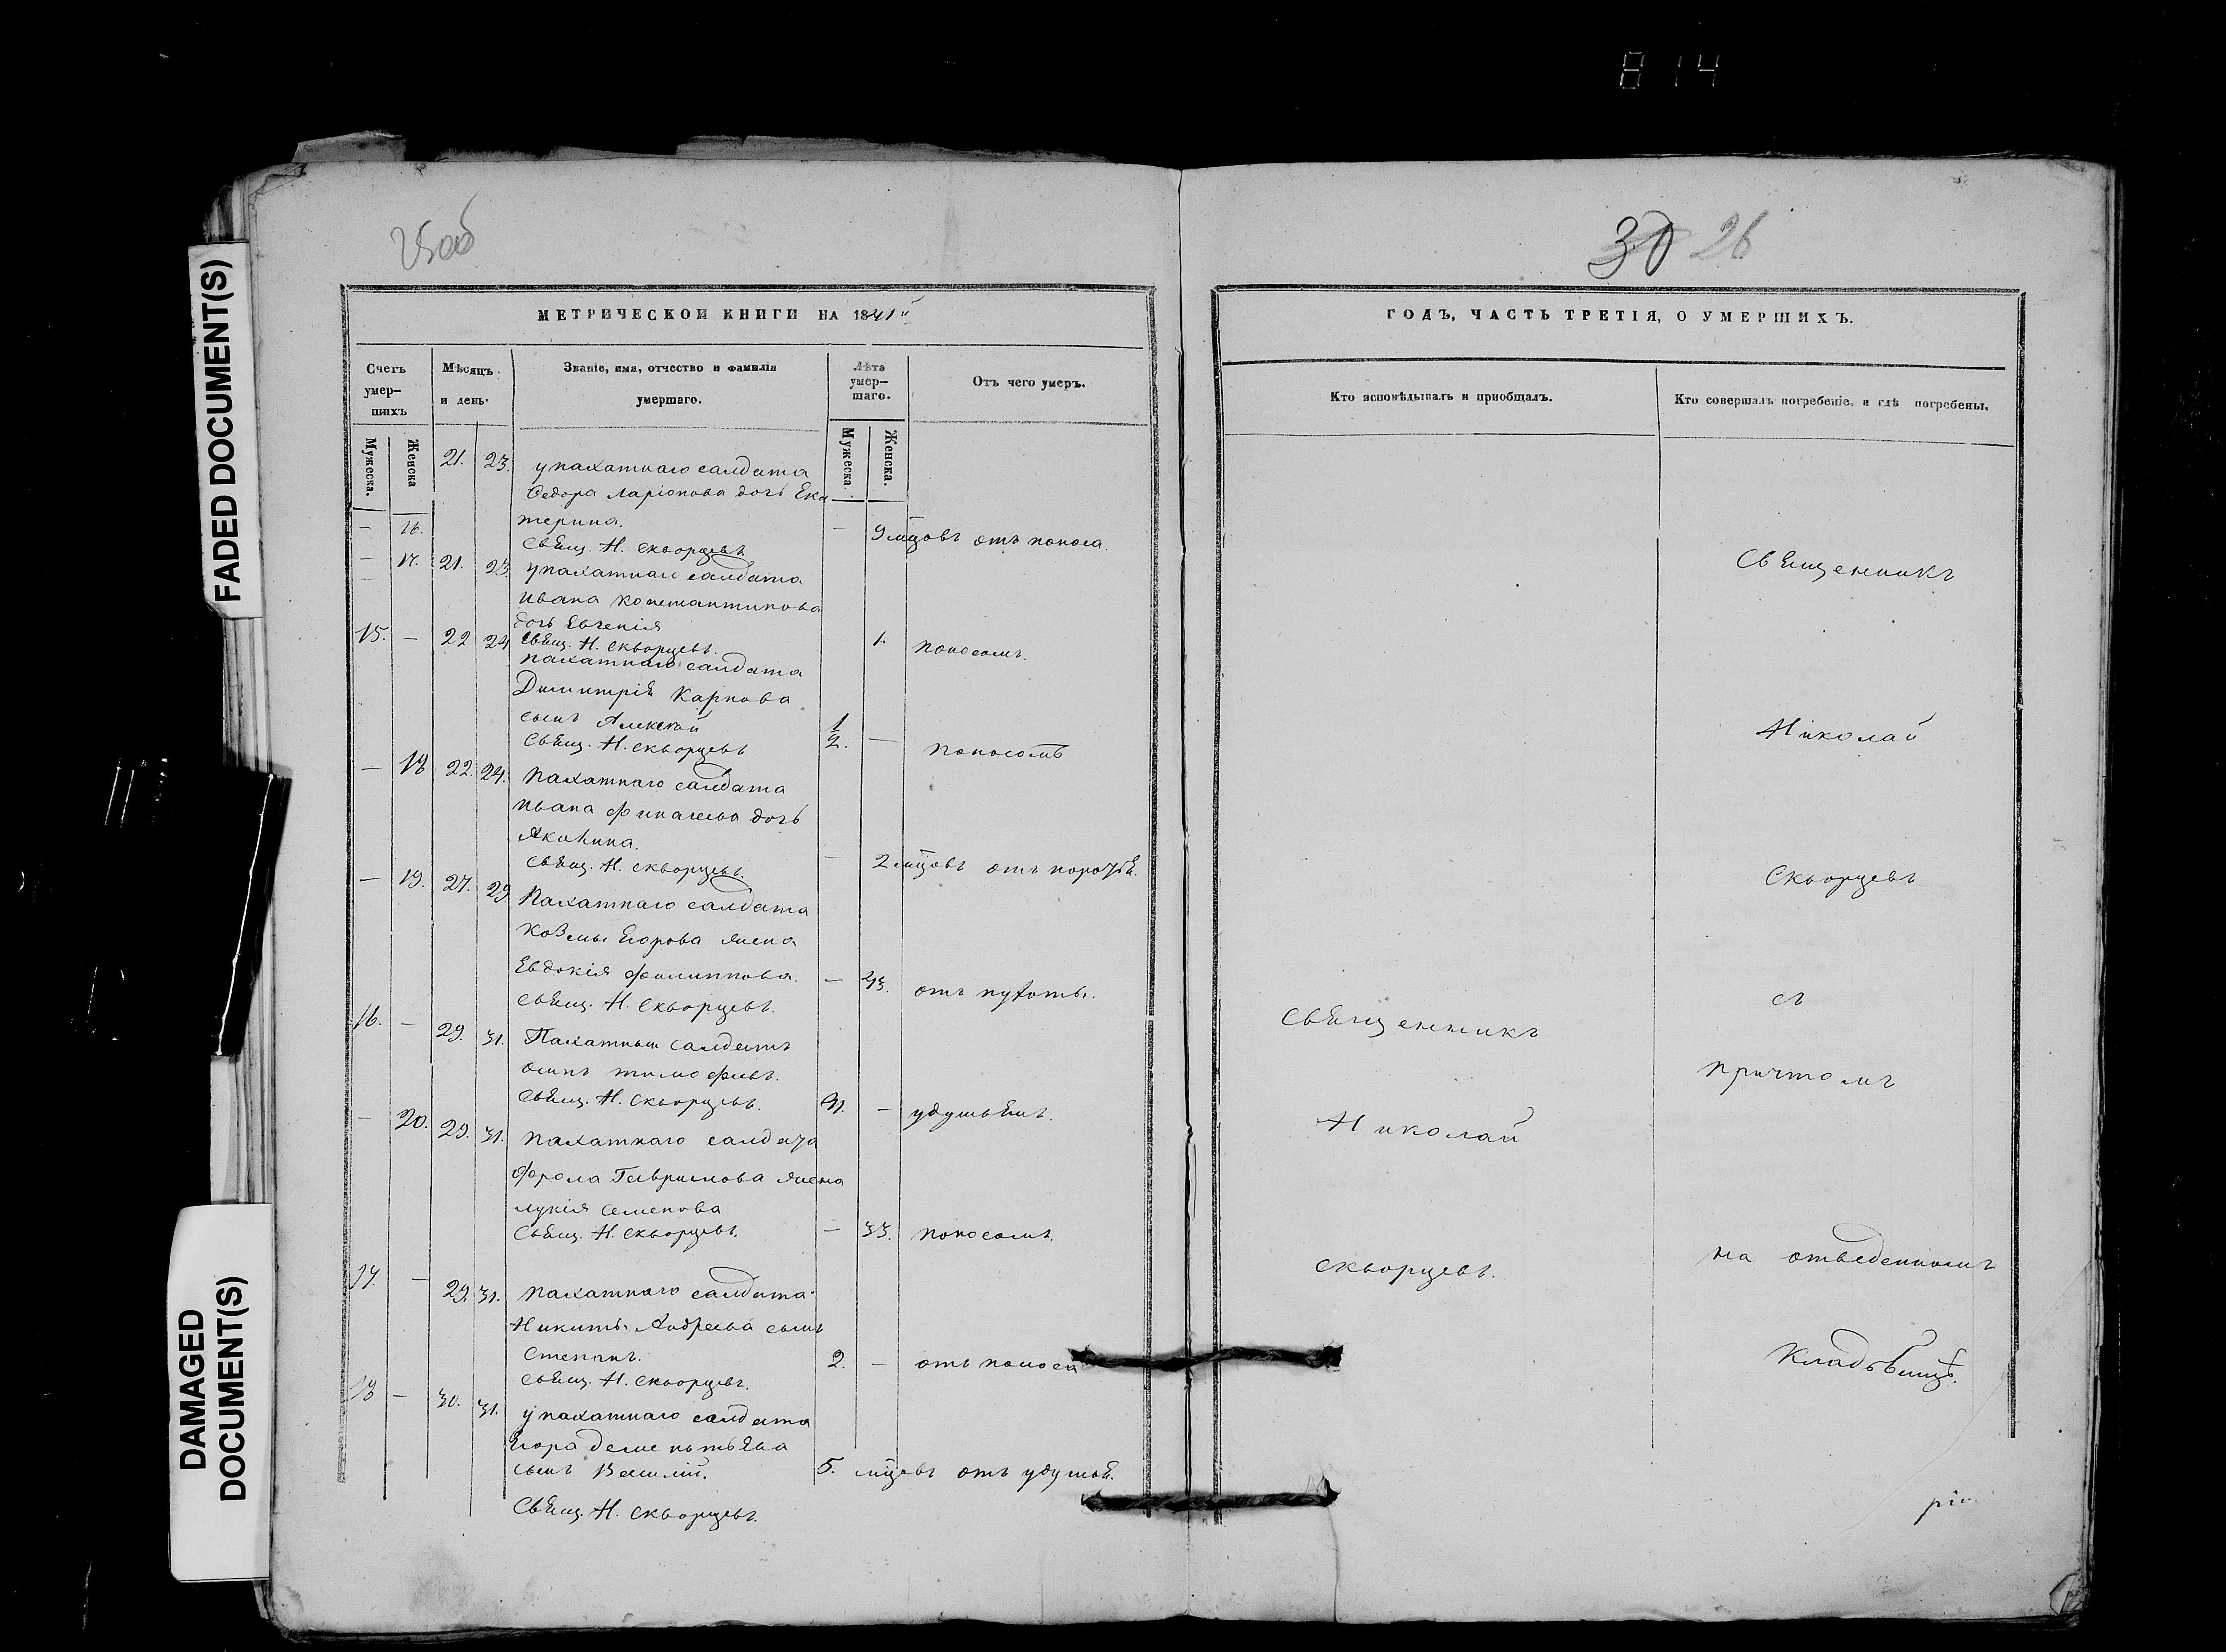 8 14
FADED DOCUMENT(S)
DAMAGED
DOCUMENT(S)
25об
МЕТРИЧЕСКОЙ КНИГИ НА 1841й
Счетъ умер-шихъ
Мѣсяцъ и день.
Званіе, имя, отчество и фамилія умершаго.
Лѣта умер-шаго.
Отъ чего умеръ.
Мужеска.
Женска
Мужеска.
Женска.
21. 23. у пахатнаго салдата
Федора Ларіонова дочь Ека
— 16. терина. — 9 мцовъ отъ поноса.
Свящ. Н. Скворцевъ.
— 17. 21. 23. у пахатнаго салдата
Ивана Константинова
дочь Евгенія 1. поносомъ.
Свящ. Н. Скворцевъ.
15. — 22 24 пахатнаго салдата
Димитрія Карпова
сынъ Алексѣй 1/2. — поносомъ
Свящ. Н. Скворцевъ
— 18 22. 24. пахатнаго салдата
Ивана Финагеева дочь
Акилина. — 2 мцовъ отъ
Свящ. Н. Скворцевъ.
— 19. 27. 29 Пахатнаго салдата
Козмы Егорова жена
Евдокія Филиппова. — 43. отъ
Свящ. Н. Скворцевъ.
16. — 29. 31. Пахатный салдатъ
Осипъ Тимофевъ.
Свящ. Н. Скворцевъ. 91. — удушьемъ.
— 20. 29. 31. пахатнаго салдата
Фрола Гаврилова жена
Лукія Семенова
Свящ. Н. Скворцевъ. — 33. поносомъ.
17. — 29. 31. пахатнаго салдата
Никиты Андреева сынъ
Степанъ. 2. — отъ поноса
Свящ. Н. Скворцевъ.
18 — 30. 31. у пахатнаго салдата
Егора Дементьева
сынъ Василій. 5. мцовъ отъ удушья.
Свящ. Н. Скворцевъ.
30 26
ГОДЪ, ЧАСТЬ ТРЕТІЯ, О УМЕРШИХЪ.
Кто исповѣдывалъ и пріобщалъ.
Кто совершалъ погребеніе, и гдѣ погребены.
Священникъ
Николай
Скворцевъ.
Священникъ
Николай
Скворцевъ
съ
причтомъ
на отведенномъ
Кладьбищѣ.